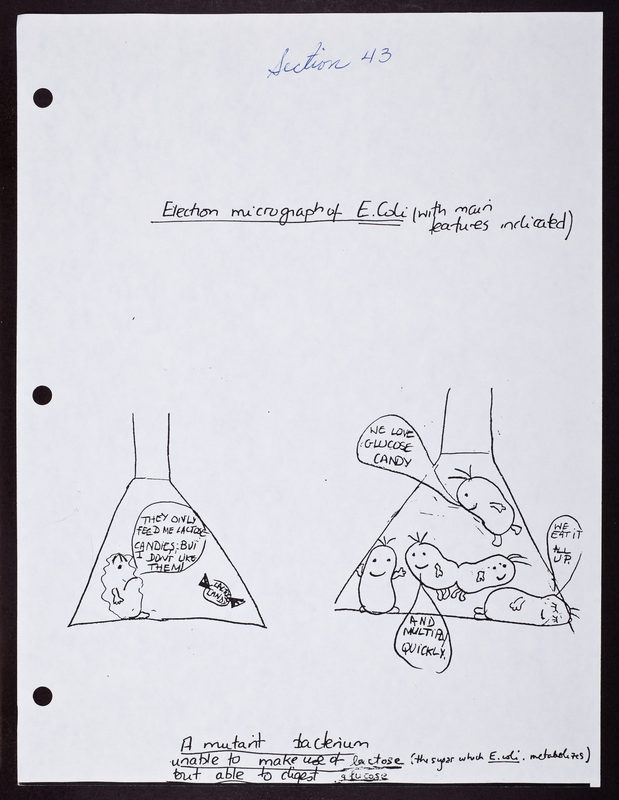 Section 43
Electron micrograph of E.Coli (with main
features indicated)
WE LOVE
GLUCOSE
CANDY
THEY ONLY
FEED ME LACTOSE
CANDIES: BUT
I DON'T LIKE
THEM!
WE
EAT IT
ALL
UP.
AND
MULTIPLY
QUICKLY.
A mutant bacterium
unable to make use of lactose (the sugar which E.coli. metabolizes)
but able to digest glucose